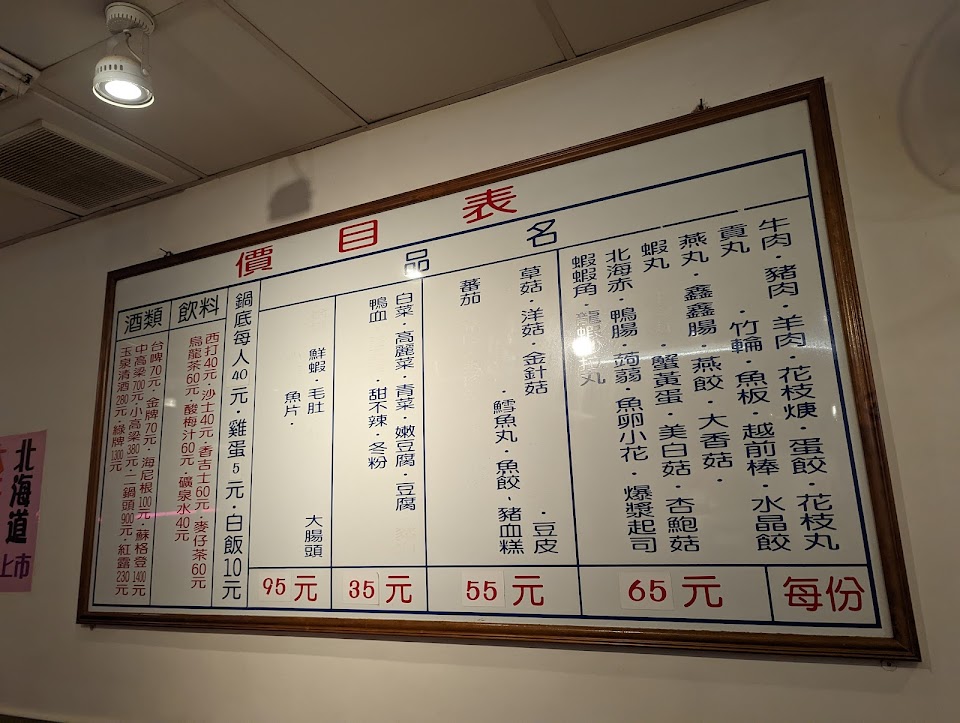 價目表
品名
牛肉·豬肉·羊肉·花枝焿·蛋餃·花枝丸
貢丸·竹輪·魚板·越前棒·水晶餃
燕丸·鑫鑫腸·燕餃·大香菇·
蝦丸·蟹黃蛋·美白菇·杏鮑菇
北海赤·鴨腸·蒟蒻·魚卵小花·爆漿起司
蝦蝦角·龍蝦沙拉丸
每份
65元
草菇·洋菇·金針菇·豆皮
·鱈魚丸·魚餃、豬血糕
蕃茄
55元
白菜·高麗菜·青菜·嫩豆腐·豆腐
鴨血·甜不辣·冬粉
35元
鮮蝦·毛肚 大腸頭
魚片·
95元
鍋底每人40元·雞蛋5元·白飯10元
飲料
西打40元·沙士40元·香吉士60元·麥仔茶60元
烏龍茶60元·酸梅汁60元 礦泉水40元
酒類
台啤70元·金牌70元·海尼根100元·蘇格登1400元
中高梁700元·小高梁380元·二鍋頭900元·紅露230元
玉泉清酒280元·綠牌1300元
北海道
上市